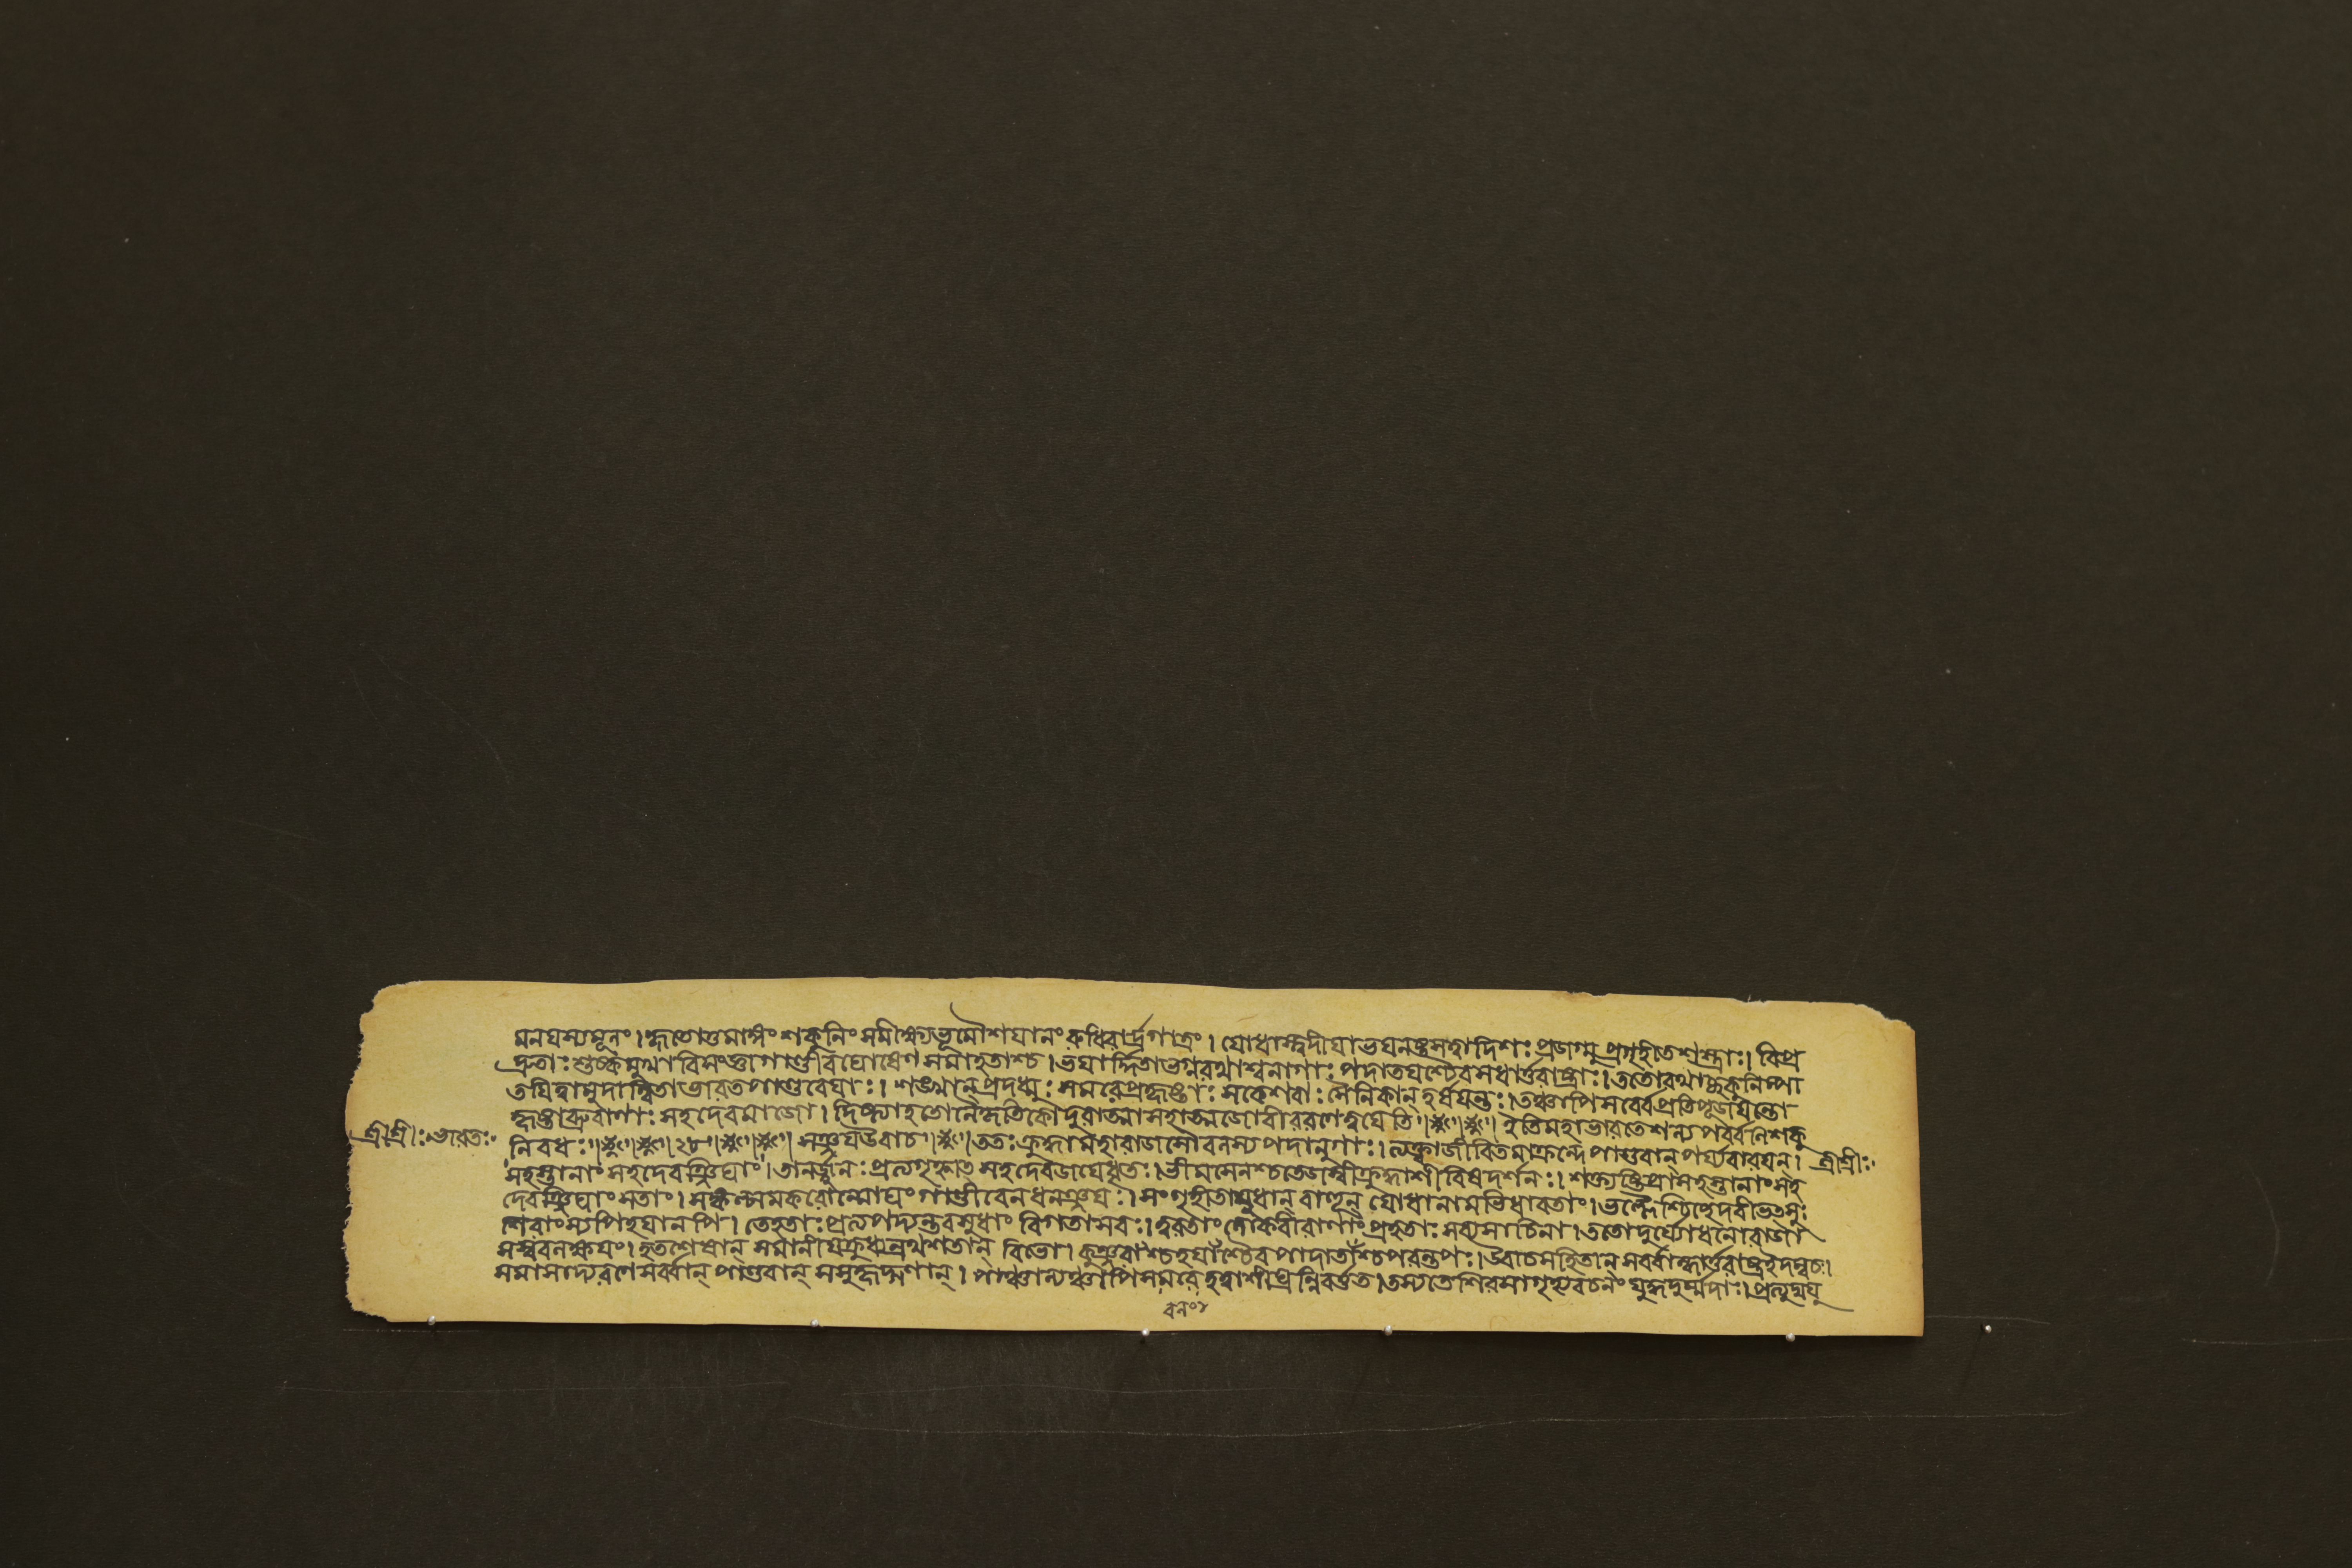 মনযস্যমূনং। হৃতোত্তমাঙ্গং শকুনিং সমীক্ষ্যভূমৌশযানং রুধিরার্দ্রগাত্রং। যোধাস্ত্বদীযাভযনষ্টসত্বাদিশঃ প্রজগ্মু প্রগৃহীতশস্ত্রাঃ। বিপ্র
দ্রুতাঃ শুষ্কমুখা বিসংজ্ঞাগাণ্ডীবঘোষেণ সমাহতাশ্চ। ভযার্দ্দিতাভগ্নরথাশ্বনাগাঃ পদাতযশ্চৈবসধার্ত্তরাষ্ট্রাঃ। ততোরথাচ্ছকুনিম্পা
তযিত্বামুদান্বিতাভারতপাণ্ডবেযাঃ। শঙ্খান্ প্রদধ্মুঃ সমরেপ্রহৃষ্টাঃ সকেশবাঃ সৈনিকান্ হর্ষযন্তঃ। তঞ্চাপিসর্ব্বেপ্রতিপূজযন্তো
হৃষ্টাব্রুবাণাঃ সহদেবমাজৌ। দিষ্ট্যাহতোনৈকৃতিকোদুরাত্মাসহাত্মজোবীররণেত্বযেতি। ইতিমহাভারতেশল্যপর্ব্বনিশকু
শ্রীশ্রীঃ ভারতঃ নিবধঃ। ২৮। সঞ্জযউবাচ। ততঃ ক্রুদ্ধামহারাজসৌবলস্য পদানুগাঃ। ত্যক্ত্বাজীবিতমাক্রন্দে পাণ্ডবান্ পর্য্যবারযন্। শ্রীশ্রীঃ
সহস্তানাং সহদেবঞ্জিঘাং। তানর্জ্জুনঃ প্রত্যগৃহ্ণাত্ সহদেবজযেধৃতঃ। ভীমসেনশ্চতেজস্বীক্রুদ্ধাশীবিষদর্শনঃ। শক্ত্যৃষ্টিপ্রাসহস্তানাং সহ
দেবঞ্জিঘাংসতাং। সঙ্কল্পমকরোন্মোঘং গাণ্ডীবেনধনঞ্জযঃ। সংগৃহীতাযুধান্ বাহূন্ যোধানামভিধাবতাং। ভল্লৈশ্চিচ্ছেদবীভত্সুঃ
শিরাংস্যপিহযানপি। তেহতাঃ প্রত্যপদ্যন্তবসুধাং বিগতাসবঃ। ত্বরতাং লোকবীরাণাং প্রহতাঃ সব্যসাচিনা। ততোদুর্য্যোধনোরাজা
সস্ববলক্ষযং। হতশেষান্ সমানীযক্রুধ্যন্রথশতান্ বিভো। কুঞ্জরাংশ্চহযাঁশ্চৈব পাদাতাঁশ্চপরন্তপঃ। উবাচসহিতান্ সর্ব্বান্ধার্ত্তরাষ্ট্রইদম্বচঃ।
সমাসাদ্যরণেসর্ব্বান্ পাণ্ডবান্ সসুহৃদ্গণান্। পাঞ্চাল্যঞ্চাপিসমরে হত্বাশীঘ্রন্নিবর্ত্তত। তস্যতেশিরসাগৃহ্যবচনং যুদ্ধদুর্ম্মদাঃ। প্রত্যুদ্যযু
বলং